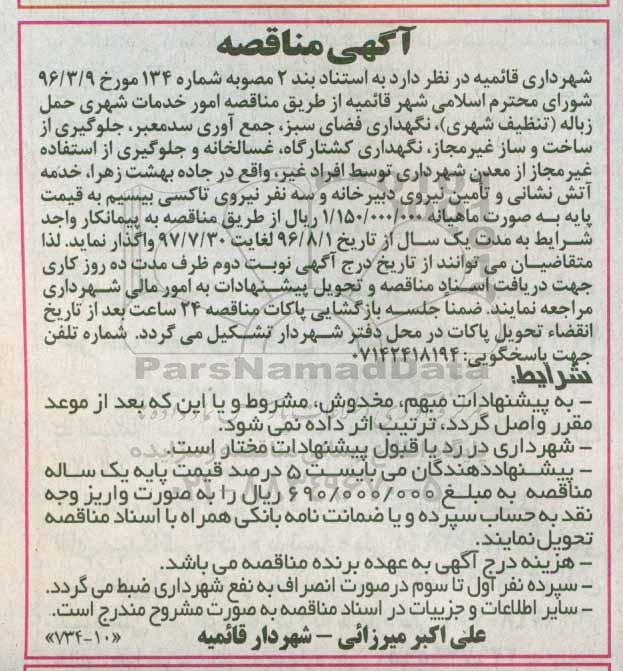 آگهی مناقصه
شهرداری قائمیه در نظر دارد به استناد بند ۲ مصوبه شماره ۱۳۴ مورخ ۹۶/۳/۹
شورای محترم اسلامی شهر قائمیه از طریق مناقصه امور خدمات شهری حمل
زباله (تنظیف شهری)، نگهداری فضای سبز، جمع آوری سدمعبر، جلوگیری از
ساخت و ساز غیرمجاز، نگهداری کشتارگاه، غسالخانه و جلوگیری از استفاده
غیرمجاز از معدن شهرداری توسط افراد غیر، واقع در جاده بهشت زهرا، خدمه
آتش نشانی و تأمین نیروی دبیرخانه و سه نفر نیروی تاکسی بیسیم به قیمت
پایه به صورت ماهیانه ۱/۱۵۰/۰۰۰/۰۰۰ ریال از طریق مناقصه به پیمانکار واجد
شرایط به مدت یک سال از تاریخ ۹۶/۸/۱ لغایت ۹۷/۷/۳۰ واگذار نماید. لذا
متقاضیان می توانند از تاریخ درج آگهی نوبت دوم ظرف مدت ده روز کاری
جهت دریافت اسناد مناقصه و تحویل پیشنهادات به امور مالی شهرداری
مراجعه نمایند. ضمنا جلسه بازگشایی پاکات مناقصه ۲۴ ساعت بعد از تاریخ
انقضاء تحویل پاکات در محل دفتر شهردار تشکیل می گردد. شماره تلفن
جهت پاسخگویی: ۰۷۱۴۲۴۱۸۱۹۴
ParsNamadData
شرایط:
- به پیشنهادات مبهم، مخدوش، مشروط و یا این که بعد از موعد
مقرر واصل گردد، ترتیب اثر داده نمی شود.
- شهرداری در رد یا قبول پیشنهادات مختار است.
- پیشنهاددهندگان می بایست ۵ درصد قیمت پایه یک ساله
مناقصه به مبلغ ۶۹۰/۰۰۰/۰۰۰ ریال را به صورت واریز وجه
نقد به حساب سپرده و یا ضمانت نامه بانکی همراه با اسناد مناقصه
تحویل نمایند.
- هزینه درج آگهی به عهده برنده مناقصه می باشد.
- سپرده نفر اول تا سوم در صورت انصراف به نفع شهرداری ضبط می گردد.
- سایر اطلاعات و جزییات در اسناد مناقصه به صورت مشروح مندرج است.
علی اکبر میرزائی - شهردار قائمیه «۷۳۴-۱۰»